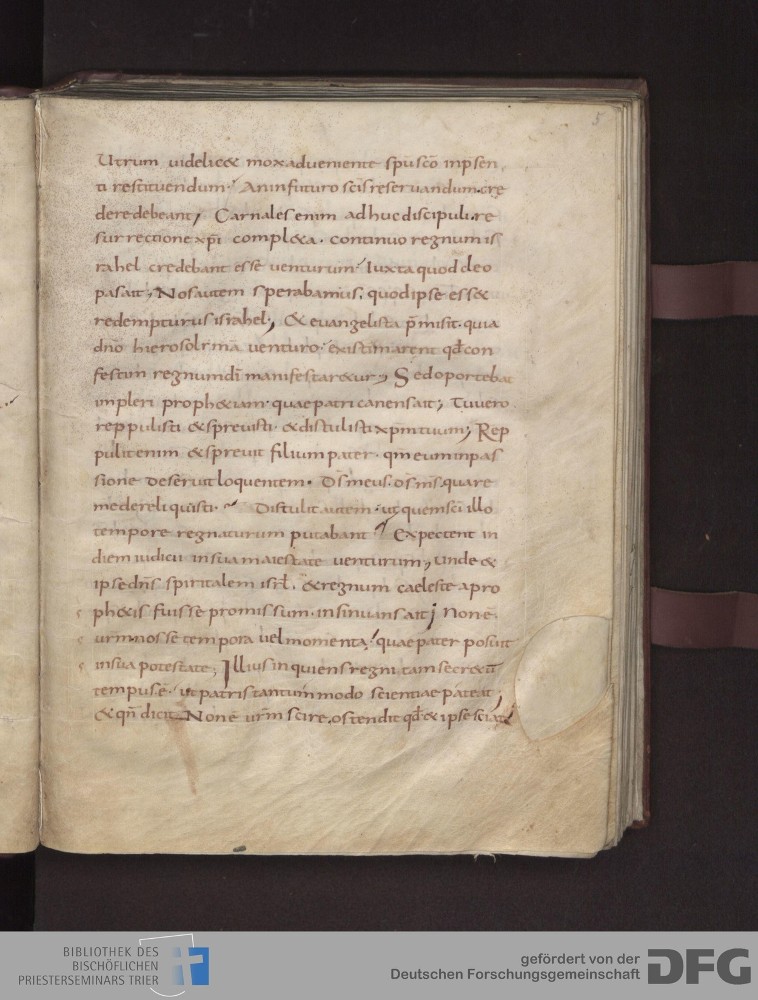 5
Utrum uidelicet mox adueniente sp̄u sc̄o inpsen
ti restituendum. An in futuro sc̄is reseruandum cre
dere debeant; Carnales enim adhuc discipuli re
surrectione xp̄i complexa. continuo regnum is
rahel credebant esse uenturum. Iuxta quod cleo
pas ait; Nos autem sperabamus. quod ipse esset
redempturus israhel; & euangelista p̄misit. quia
dn̄o hierosolimā uenturo. existimarent qd̄ con
festim regnum dī manifestaretur; Sed oportebat
impleri prophetiam. quae patri canens ait; Tu uero
reppulisti & spreuisti. & distulisti xp̄m tuum; Rep
pulit enim & spreuit filium pater. qm̄ eum in pas
sione deseruit loquentem. Ds̄ meus. ds̄ ms̄. quare
me dereliquisti. Distulit autem. ut quem sc̄i illo
tempore regnaturum putabant. Expectent in
diem iudicii in sua maiestate uenturum; Unde &
ipse dn̄s spiritalem isrl̄. & regnum caeleste a pro
phetis fuisse promissum. insinuans ait; Non ē
urm̄ nosse tempora uel momenta. quae pater posuit
in sua potestate; Illius inquiens regni tam secretū
tempus ē. ut patris tantummodo scientiae pateat;
& qn̄ dicit. Non ē urm̄ scire. ostendit qd̄ & ipse sciat
BIBLIOTHEK DES
BISCHÖFLICHEN
PRIESTERSEMINARS TRIER
gefördert von der
Deutschen Forschungsgemeinschaft
DFG